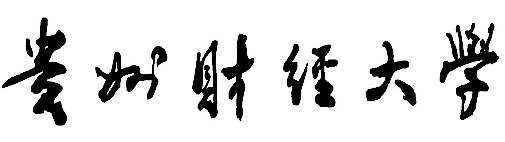 贵州财经大學